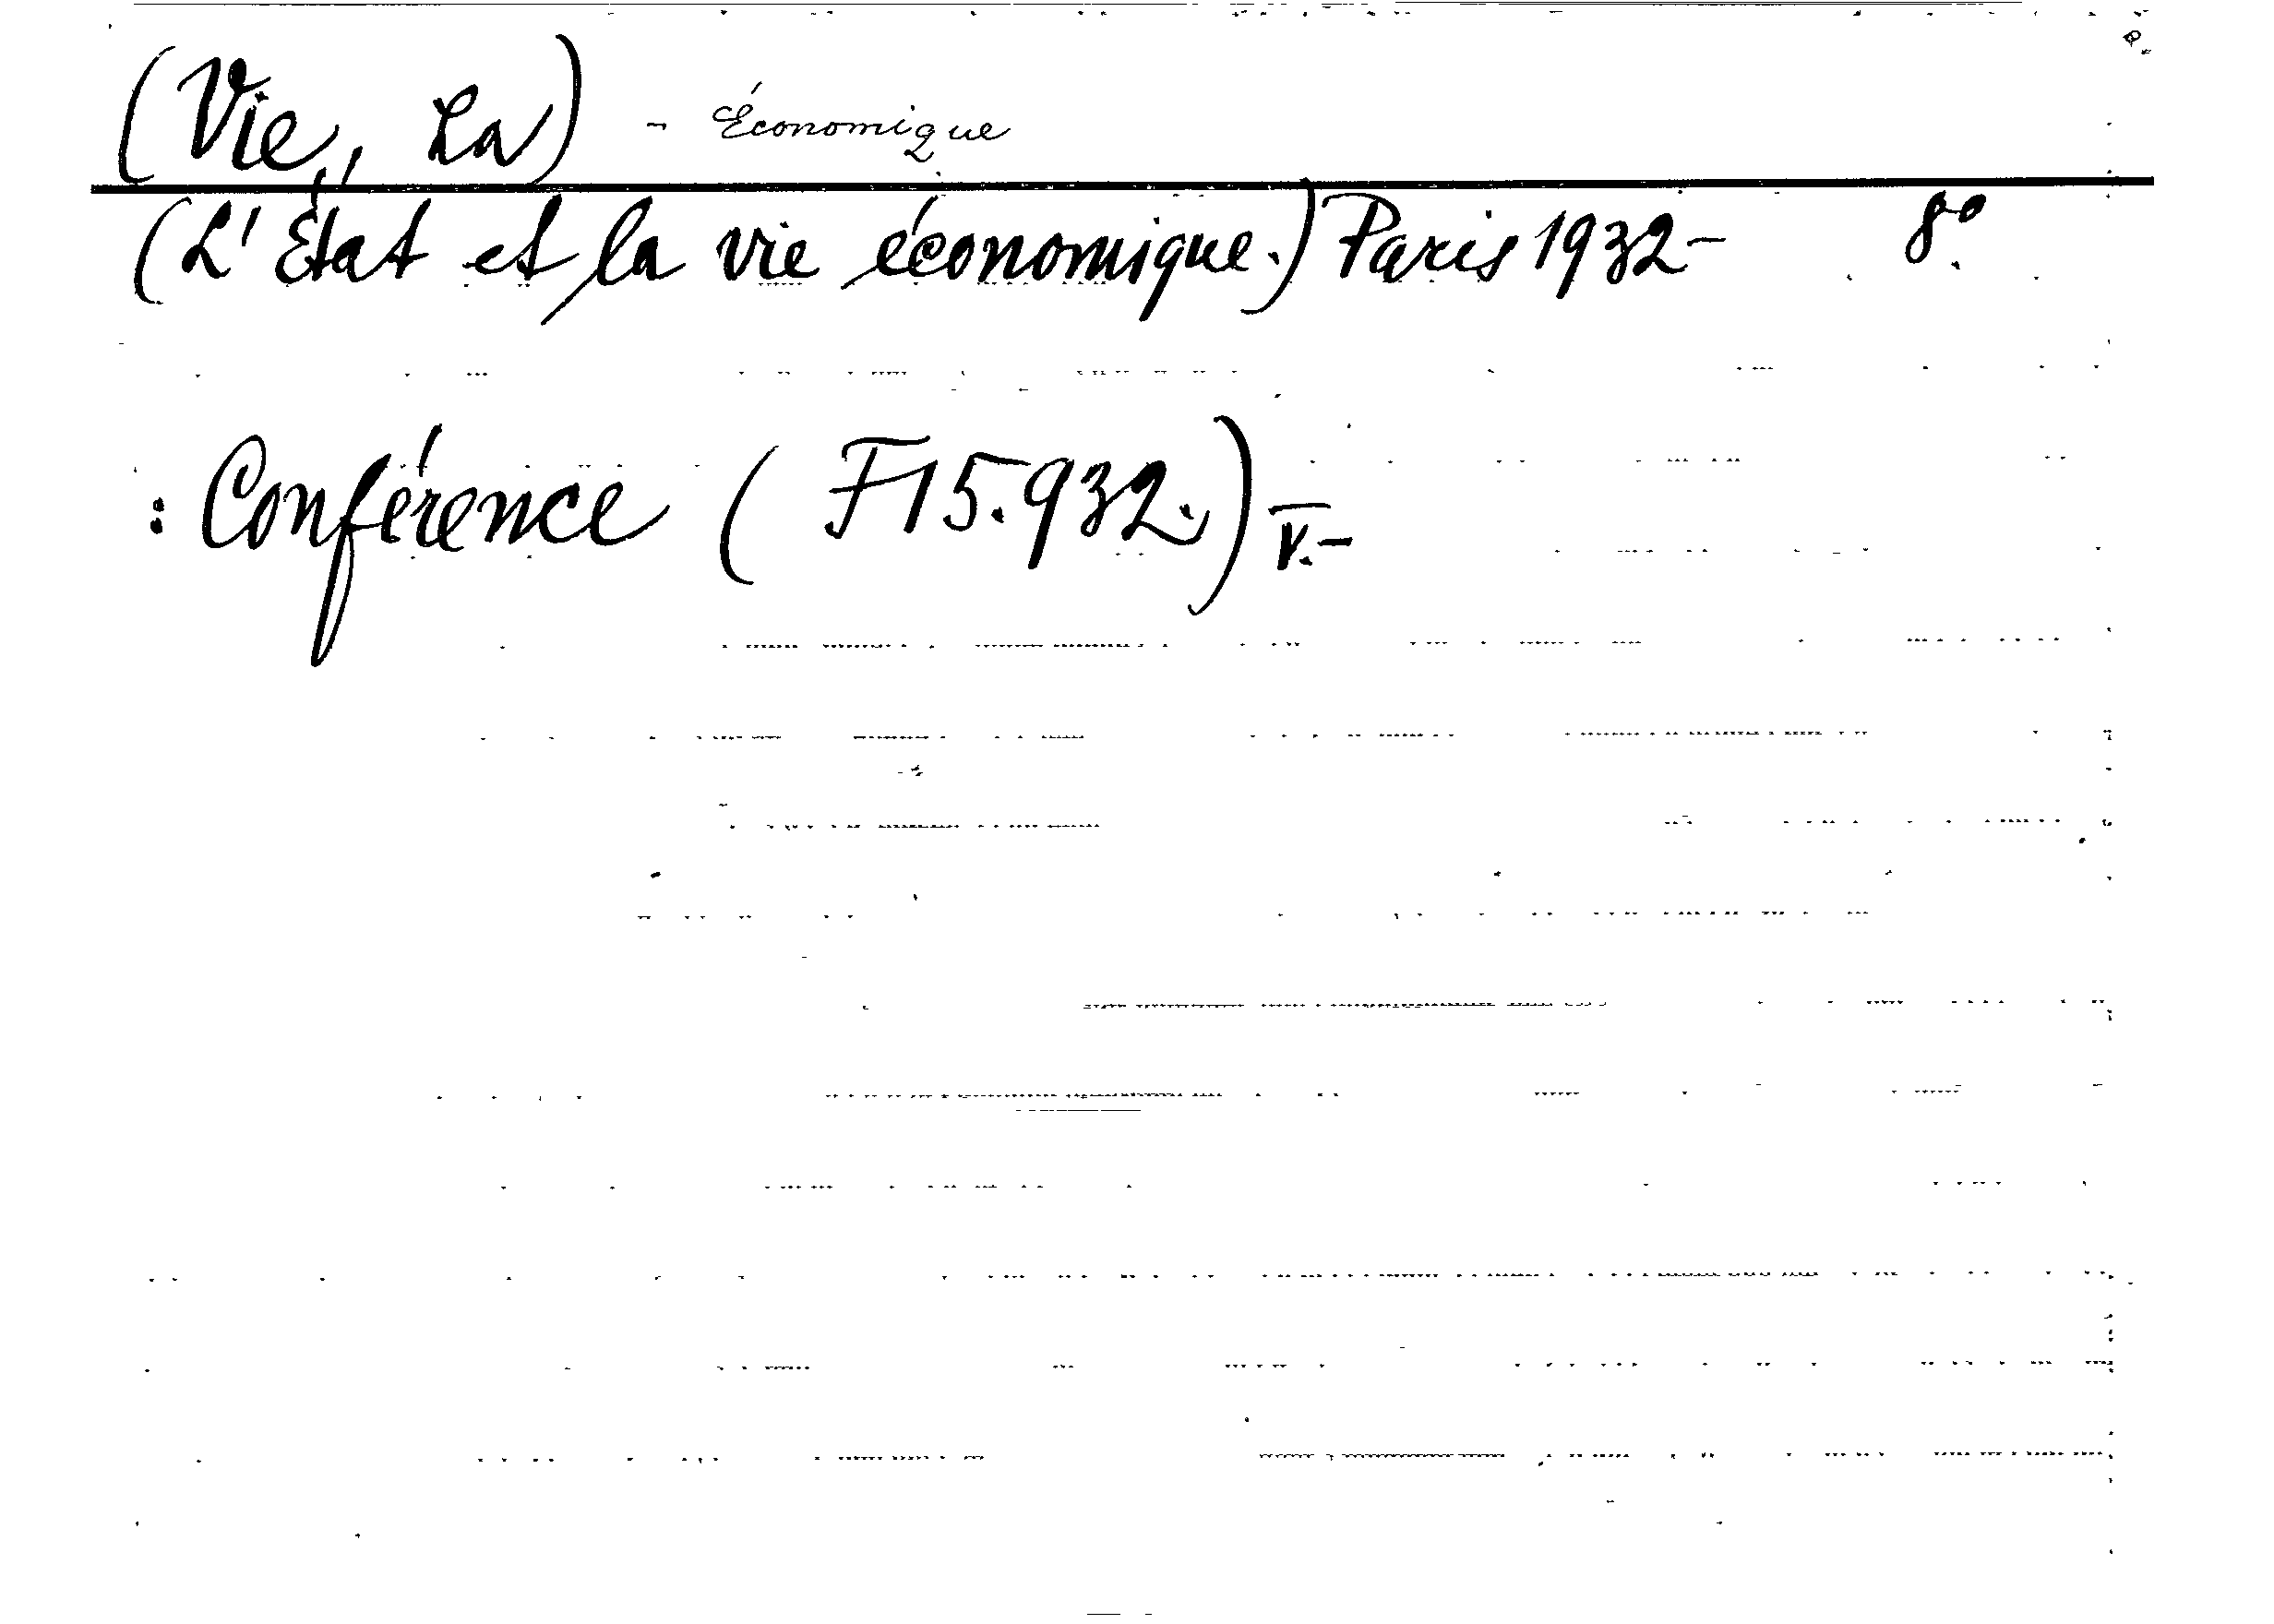 (Vie, La) - Économique
(L'État et la vie économique.) Paris 1932- 8°.
: Conférence ( F15.932.) V.-